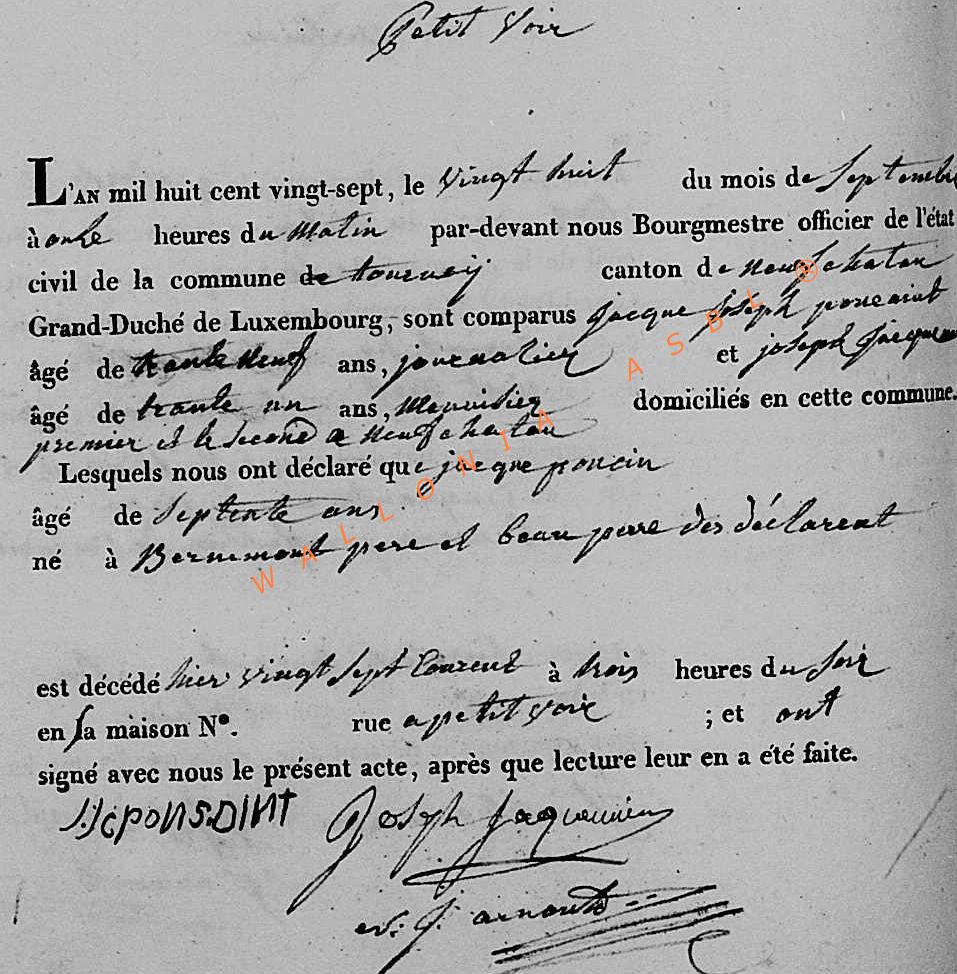 Petit Voir
L'AN mil huit cent vingt-sept, le vingt huit du mois de Septembre
à onze heures du Matin par-devant nous Bourgmestre officier de l'état
civil de la commune de tournay canton de neufchatau
Grand-Duché de Luxembourg, sont comparus jacque joseph
âgé de trante neuf ans, journalier et joseph Jacque
âgé de trante un ans, Menuisier domiciliés en cette commune.
premier et le second a neufchatau
Lesquels nous ont déclaré que jacque poncin
âgé de Septente ans
né à Bernimont pere et beau peere des déclarent
est décédé hier vingt sept Courent à trois heures du soir
en sa maison N°. rue a petit voir ; et ont
signé avec nous le présent acte, après que lecture leur en a été faite.
J:JcpONSDINT Joseph Jacquemin
J. arnould
WALLONIA ASBL ®